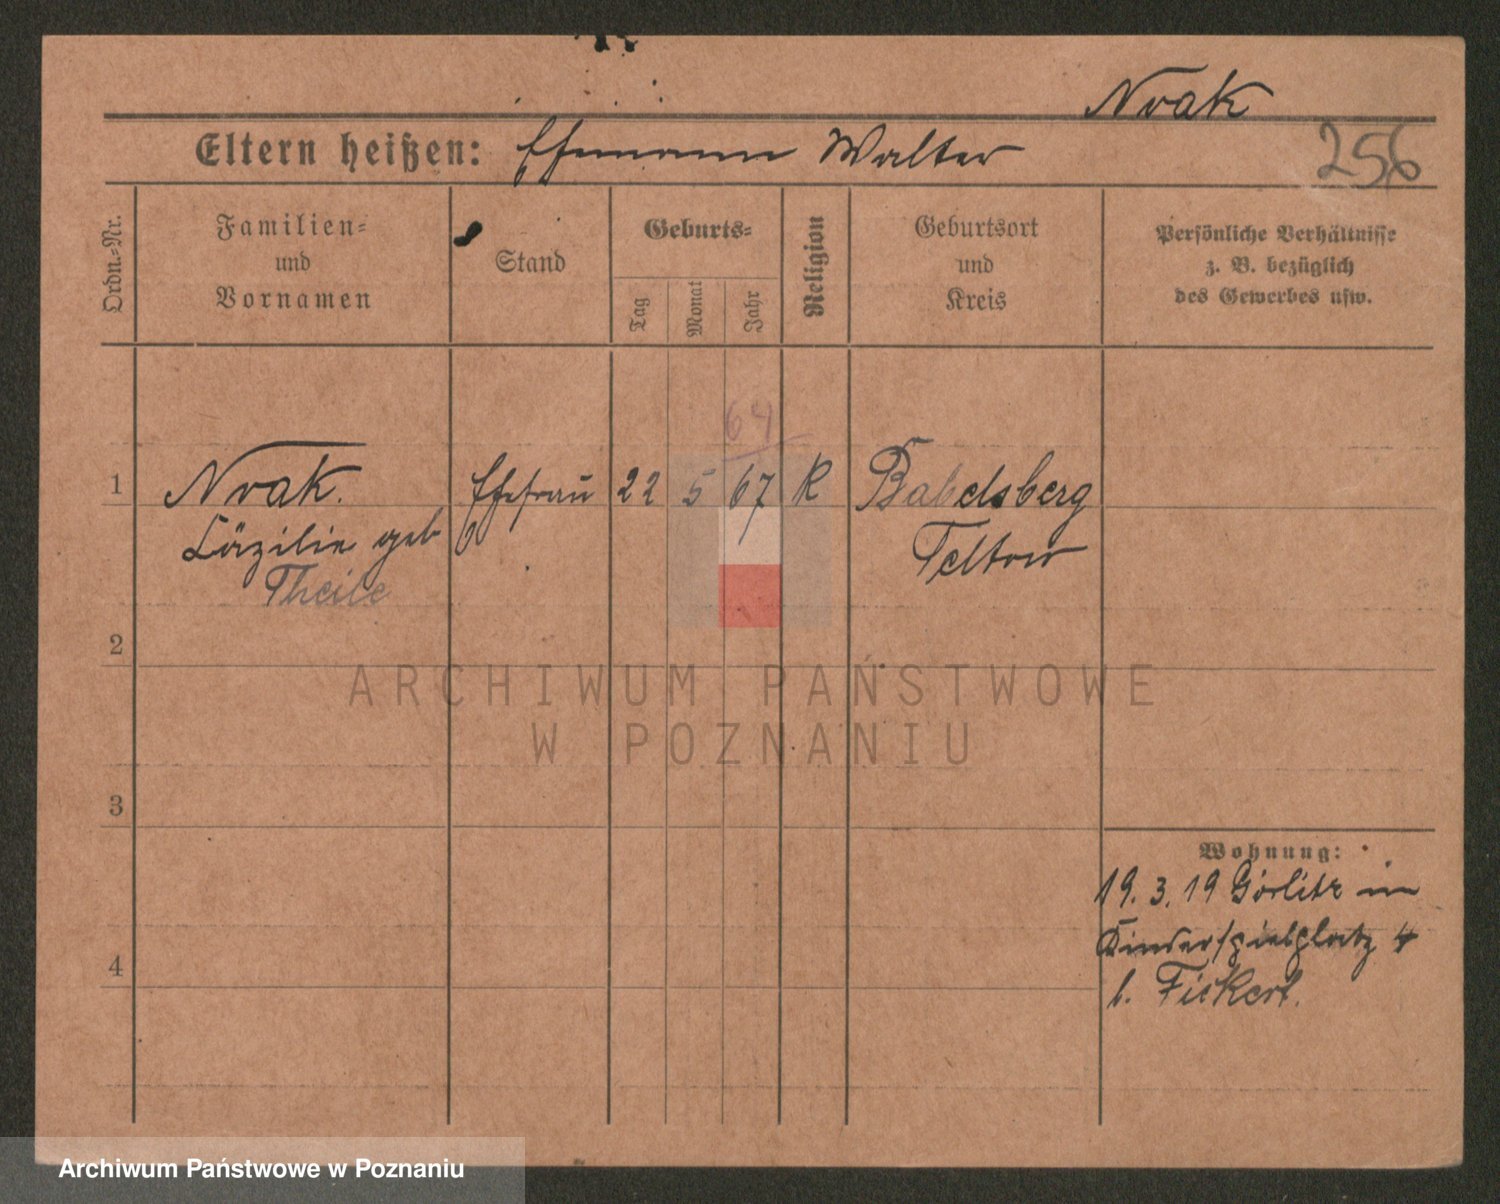 Noak
Eltern heißen: Ehemann Walter
256
Ordn.-Nr.
Familien-
und
Vornamen
Stand
Geburts-
Tag
Monat
Jahr
Religion
Geburtsort
und
Kreis
Persönliche Verhältnisse
z. B. bezüglich
des Gewerbes usw.
64
1 Noak. Ehefrau 22 5 67 R Babelsberg
Cäzilie geb Teltow
Theile
2
3
4
Wohnung:
19. 3. 19 Görlitz in
Kinderspielplatz 4
b. Fickert.
ARCHIWUM PAŃSTWOWE
W POZNANIU
Archiwum Państwowe w Poznaniu